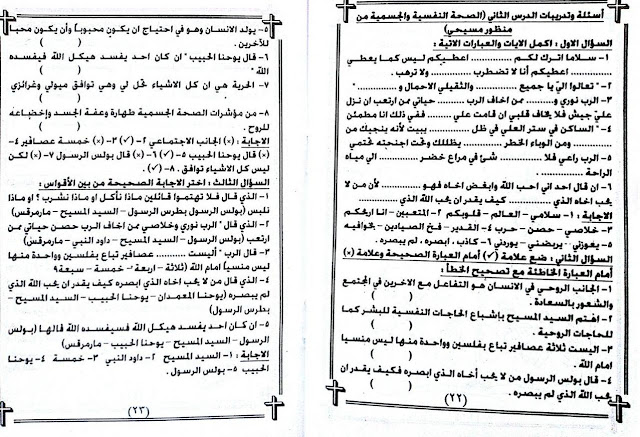 أسئلة وتدريبات الدرس الثاني (الصحة النفسية والجسمية من
منظور مسيحي)
السؤال الاول : اكمل الايات والعبارات الاتية :
١- سلاما اترك لكم ........... اعطيكم ليس كما يعطي
........... اعطيكم أنا لا تضطرب ........... ولا ترهب .
٢- "تعالوا اليّ يا جميع ........... والثقيلي الاحمال و ........... "
٣- الرب نوري و........... ممن اخاف الرب ........... حياتي ممن ارتعب ان نزل
عليّ جيش فلا يخاف قلبي ان قامت علي ........... ففي ذلك انا مطمئن
٤- "الساكن في ستر العلي في ظل ........... يبيت لأنه ينجيك من
........... ومن الوباء الخطر ........... يظللك وتحت اجنحته تحتمي
٥- الرب راعي فلا ........... شئ في مراع خضر ........... الي مياه
الراحة .
٦- ان قال احد اني احب الله وابغض اخاه فهو ........... لأن من لا
يحب اخاه الذي ........... كيف يقدر ان يحب الله الذي ...........
الاجابة : ١- سلامي - العالم - قلوبكم ٢- المتعبين - انا اريحكم
٣- خلاصي - حصن - حرب ٤- القدير - فخ الصيادين - بخوافيه
٥- يعوزني - يربضني - يوردني ٦- كاذب . ابصره . لم يبصره .
السؤال الثاني : ضع علامة (✓) أمام العبارة الصحيحة وعلامة (×)
أمام العبارة الخاطئة مع تصحيح الخطأ :
١- الجانب الروحي في الانسان هو التفاعل مع الاخرين في المجتمع
والشعور بالسعادة . ( )
٢- اهتم السيد المسيح بإشباع الحاجات النفسية للبشر كما
للحاجات الروحية . ( )
٣- اليست ثلاثة عصافير تباع بفلسين وواحدة منها ليس منسيا
امام الله . ( )
٤- قال بولس الرسول من لا يحب أخاه الذي ابصره فكيف يقدر ان
يحب الله الذي لم يبصره . ( )
(٢٢)
٥- يولد الانسان وهو في احتياج ان يكون محبوباً وأن يكون محباً
للآخرين . ( )
٦- قال يوحنا الحبيب " ان كان احد يفسد هيكل الله فيفسده
الله " ( )
٧- الحرية هي ان كل الاشياء تحل لي وهي توافق ميولي وغرائزي
( )
٨- من مؤشرات الصحة الجسمية طهارة وعفة الجسد وإخضاعه
للروح . ( )
الاجابة : (×) الجانب الاجتماعي ٢- (✓) ٣- (×) خمسة عصافير ٤-
(×) قال يوحنا الحبيب ٥- (✓) ٦- (×) قال بولس الرسول ٧- (×) لكن
ليس كل الاشياء توافق . ٨- (✓) .
السؤال الثالث : اختر الاجابة الصحيحة من بين الأقواس :
١- الذي قال فلا تهتموا قائلين ماذا نأكل او ماذا نشرب ؟ او ماذا
نلبس (بولس الرسول بطرس الرسول - السيد المسيح - مارمرقس)
٢- الذي قال " الرب نوري وخلاصي ممن اخاف الرب حصن حياتي ممن
ارتعب (بولس الرسول - السيد المسيح - داود النبي - مارمرقس)
٣- قال الرب "أليست ........... عصافير تباع بفلسين وواحدة منها
ليس منسياً امام الله (ثلاثة - اربعة - خمسة - سبعة؟
٤- الذي قال من لا يحب اخاه الذي ابصره كيف يقدر ان يحب الله الذي
لم يبصره (يوحنا المعمدان - يوحنا الحبيب - السيد المسيح -
بطرس الرسول)
٥- ان كان احد يفسد هيكل الله فسيفسده الله قالها (بولس
الرسول - السيد المسيح - يوحنا الحبيب - مارمرقس)
الاجابة : ١- السيد المسيح ٢- داود النبي ٣- خمسة ٤- يوحنا
الحبيب ٥- بولس الرسول .
(٢٣)